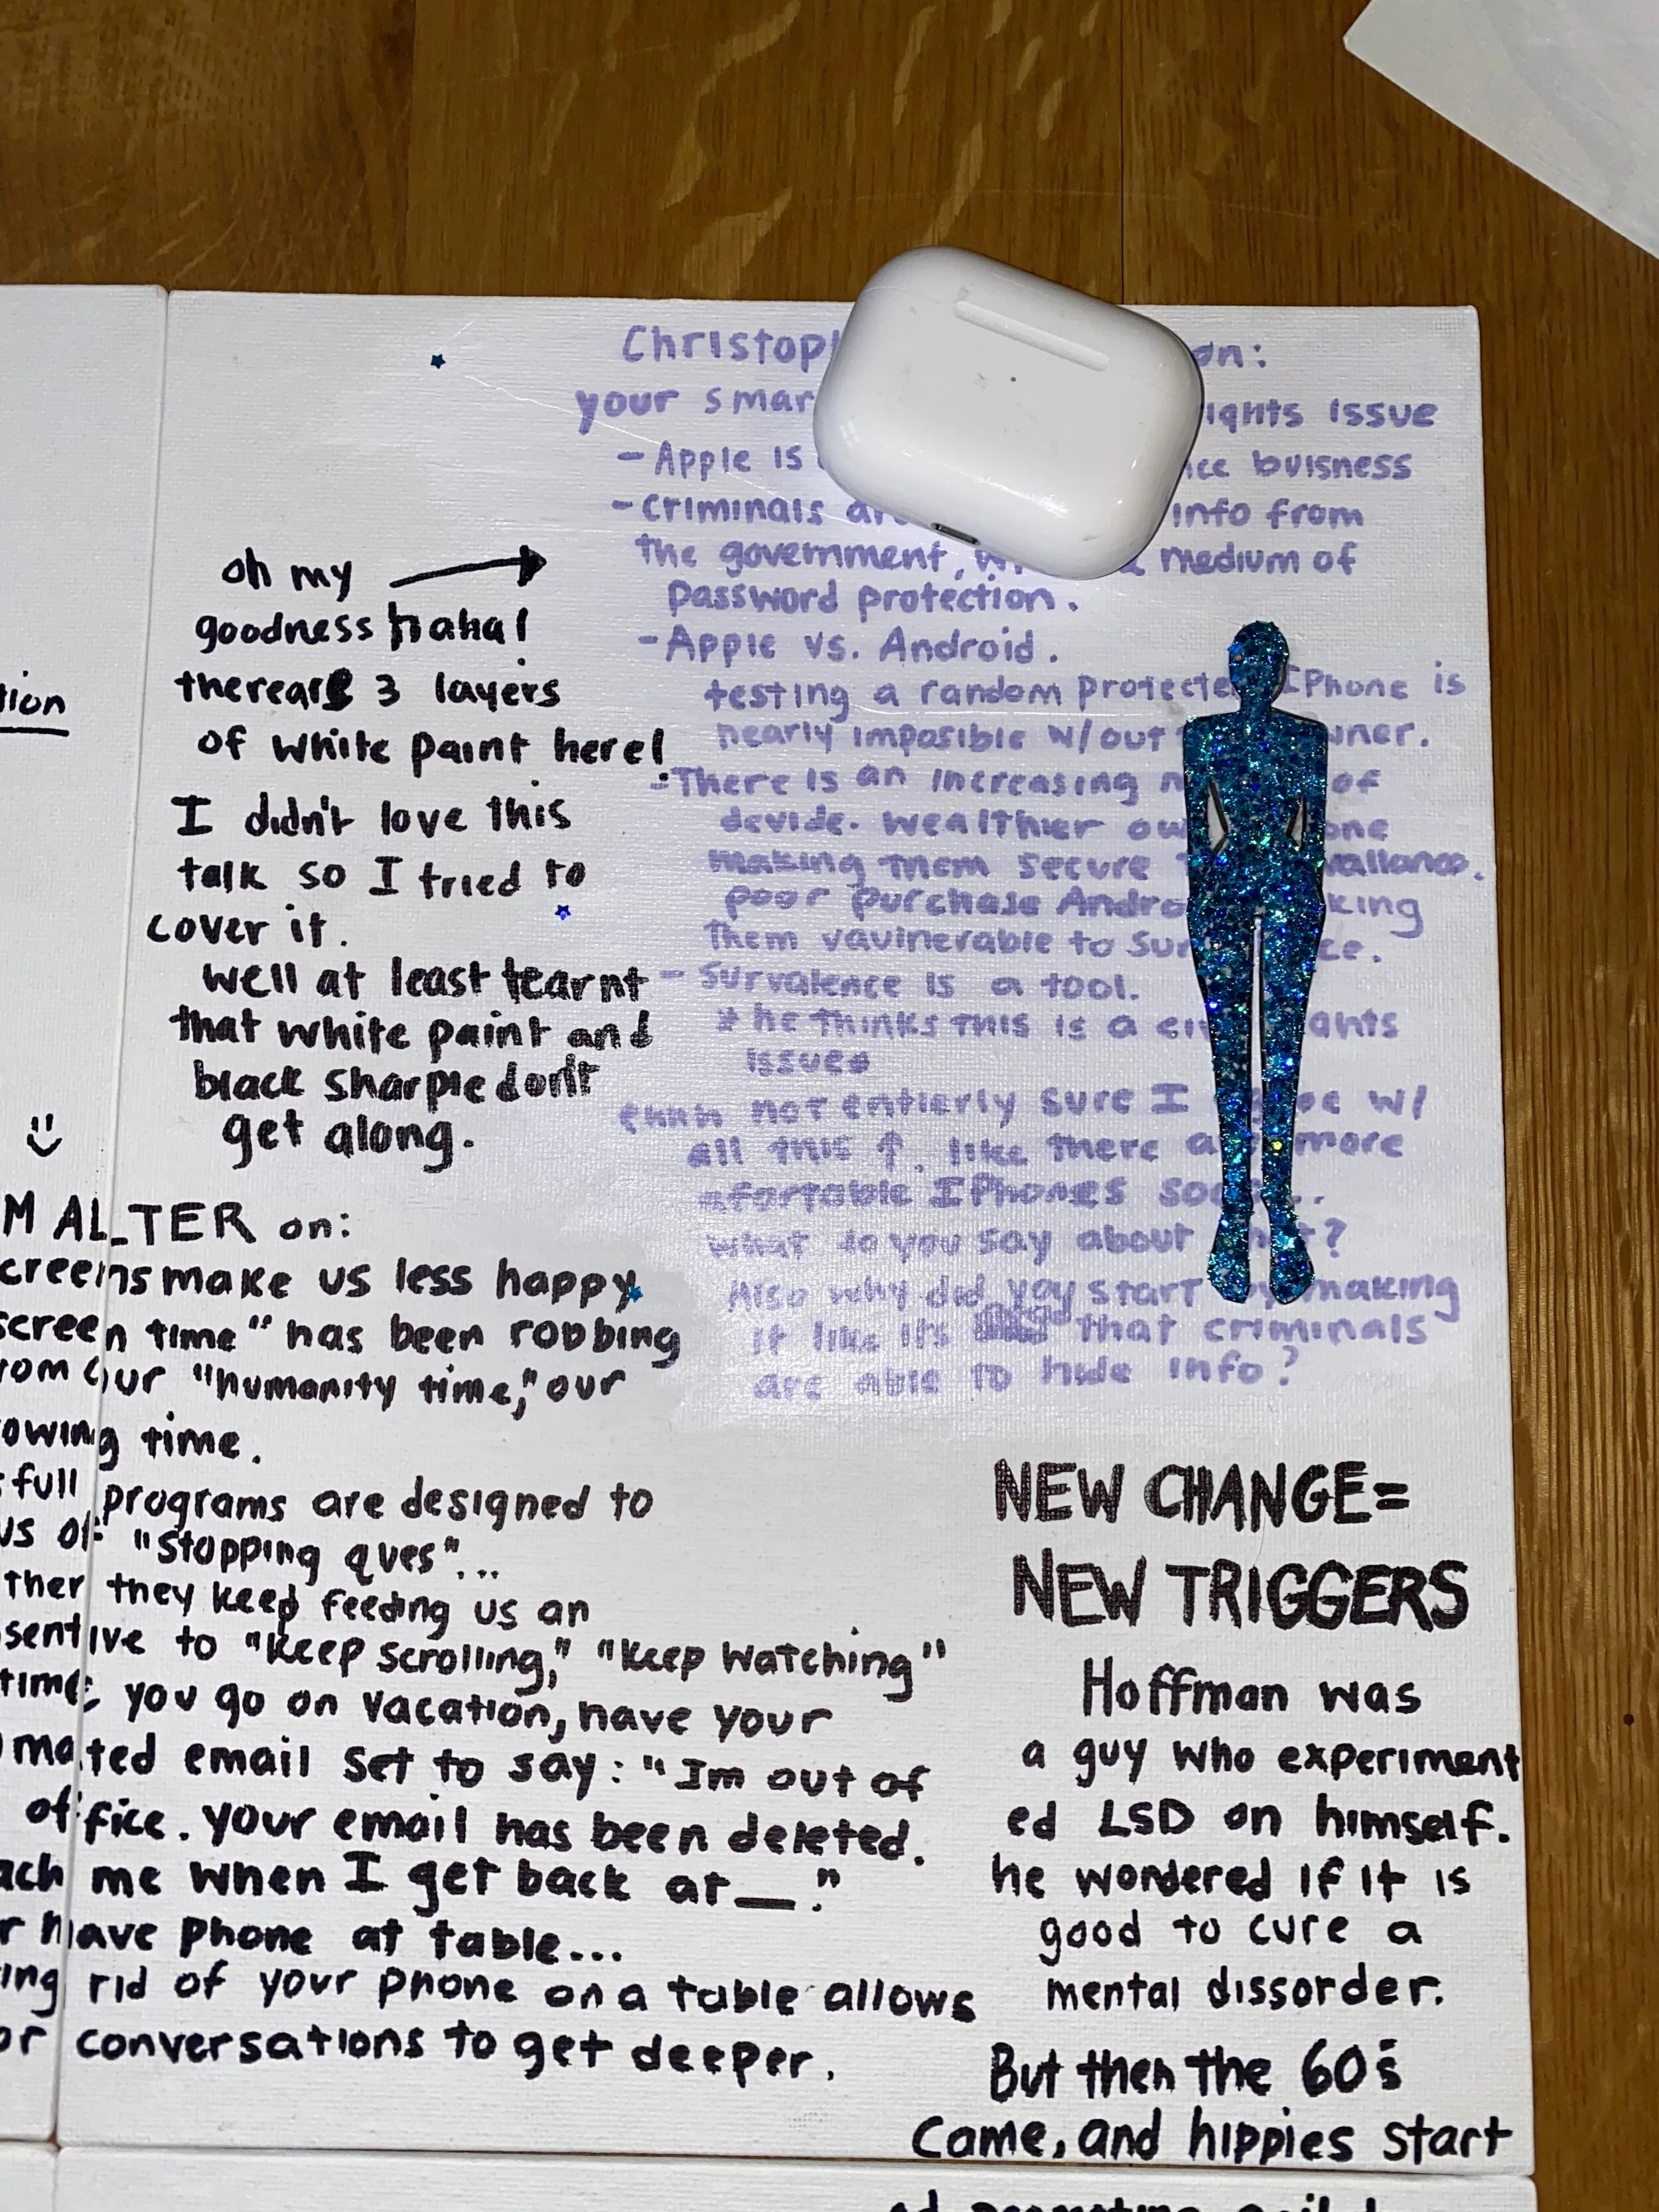 Christop on:
your smar ights issue
- Apple is ce buisness
- criminals info from
the government, medium of
password protection.
- Apple vs. Android.
testing a random protecte IPhone is
nearly imposible w/out ner.
- There is an increasing of
devide. wealthier one
making them secure
poor purchase Andro king
them vaulnerable to sur ce.
- survalence is a tool.
* he thinks this is a ci ghts
issue*
ehhh not entierly sure I w/
all this ↑. like there more
afortable IPhones
what do you say about ?
Also why did you start making
it like its that criminals
are able to hide info?
oh my →
goodness haha!
thereare 3 layers
of white paint here!
I didn't love this
talk so I tried to
cover it.
well at least learnt
that white paint and
black sharpie don't
get along.
tion
M ALTER on:
creens make us less happy
screen time" has been robbing
rom our "humanity time," our
owing time.
full programs are designed to
us of "stopping ques"...
ther they keep feeding us an
sentive to "keep scrolling," "keep watching"
time you go on vacation, have your
mated email set to say: "Im out of
office. your email has been deleted.
ach me when I get back at __."
r have phone at table...
ing rid of your phone on a table allows
or conversations to get deeper.
NEW CHANGE=
NEW TRIGGERS
Hoffman was
a guy who experiment
ed LSD on himself.
he wondered if it is
good to cure a
mental dissorder.
But then the 60's
came, and hippies start